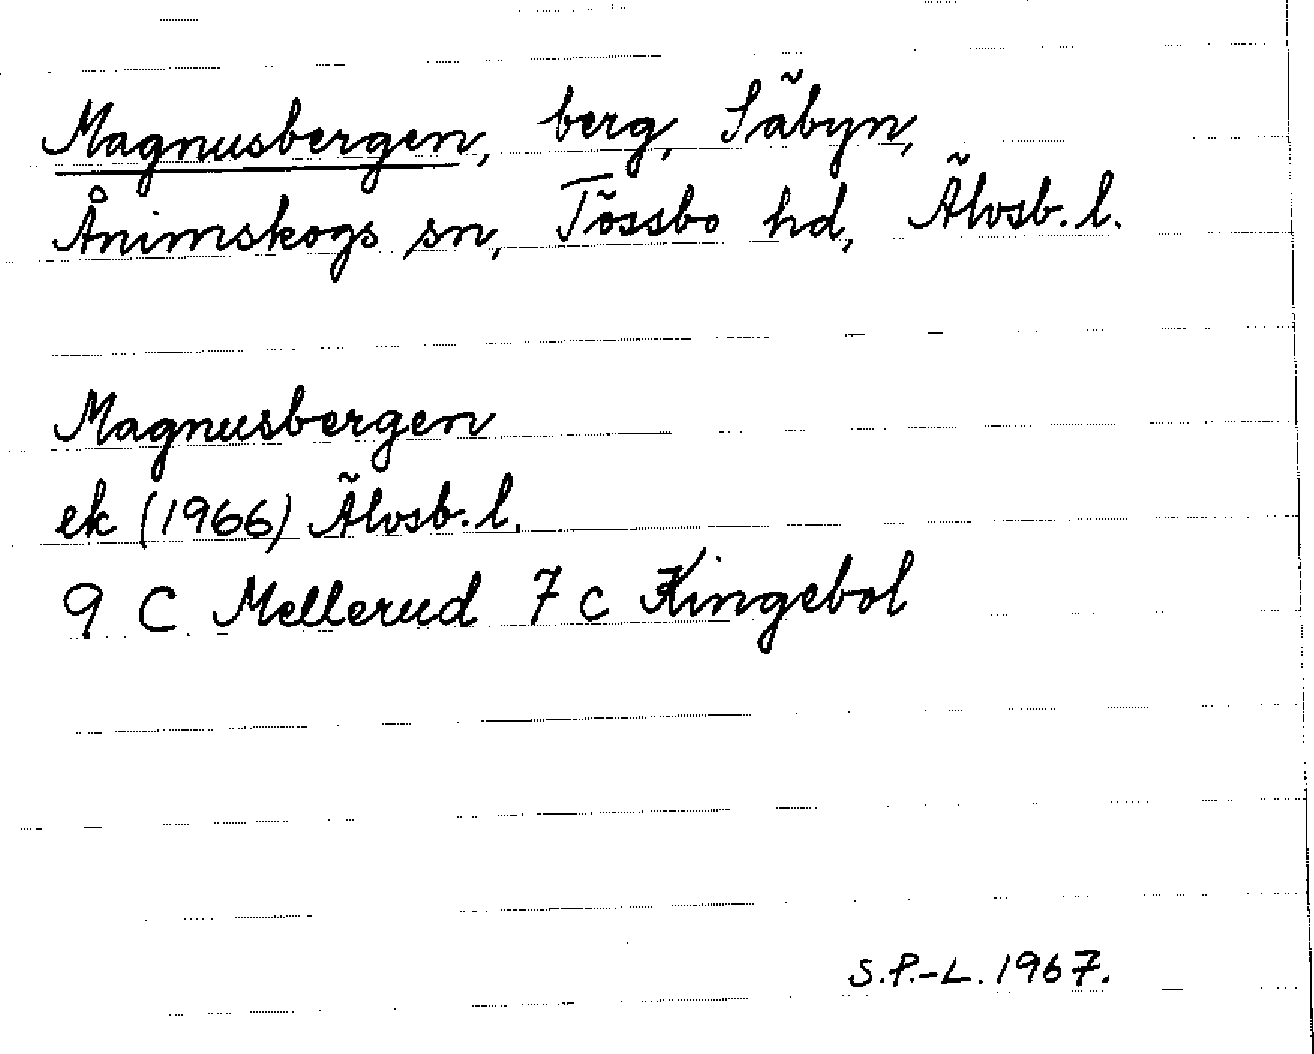 Magnusbergen, berg, Säbyn,
Ånimskogs sn, Tössbo hd, Älvsb. l.
Magnusbergen
ek (1966) Älvsb. l.
9 C Mellerud 7 c Kingebol
S.P.-L. 1967.